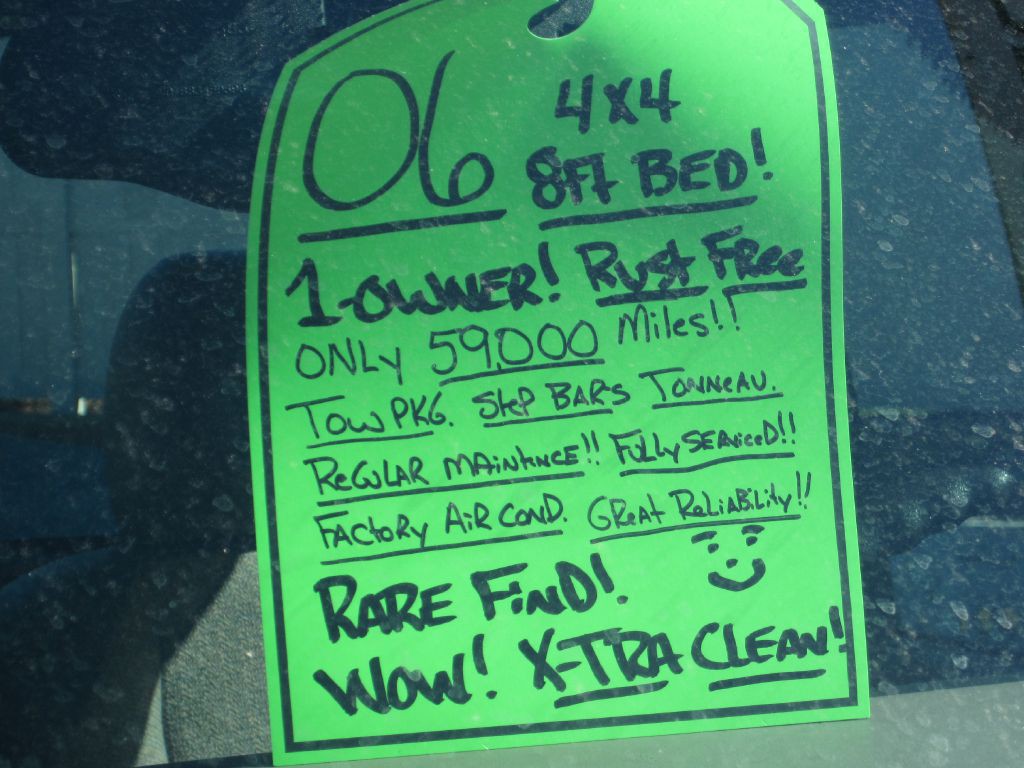 06 4x4
8ft BED!
1-OWNER! Rust Free
ONLY 59,000 Miles!!
TOW PKG. STEP BARS TONNEAU.
REGULAR MAINTNCE!! FULLY SERVICED!!
FACTORY AIR COND. GREAT RELIABILITY!!
RARE FIND!
WOW! X-TRA CLEAN!